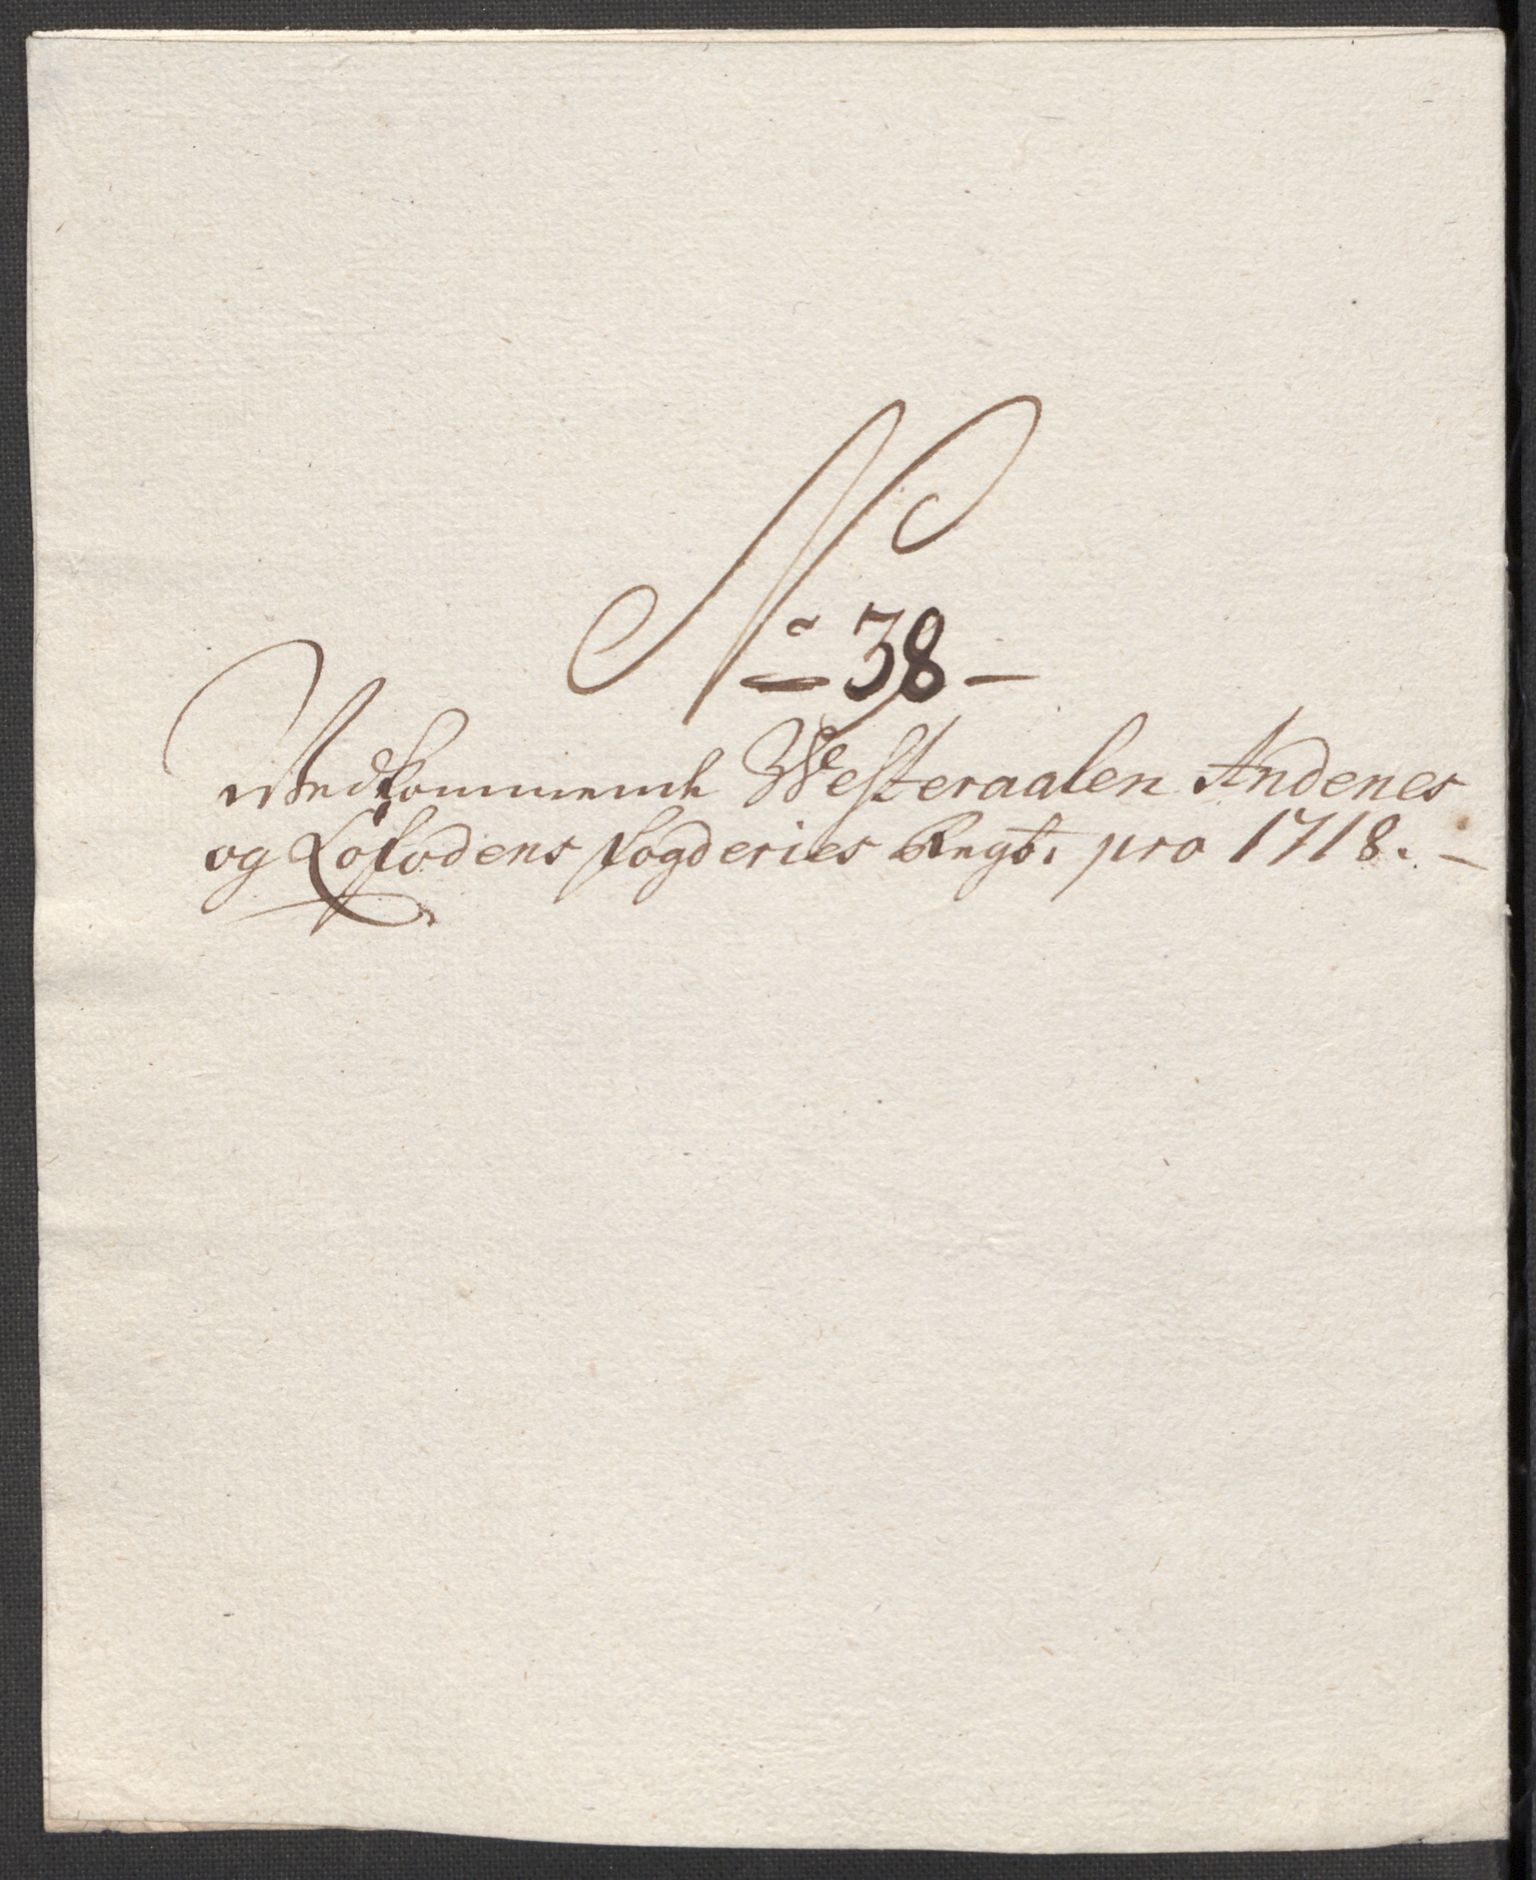 No 38 -
Vedkommende Westeraalen Andenes
og Lofodens fogderies Regb. pro 1718. -